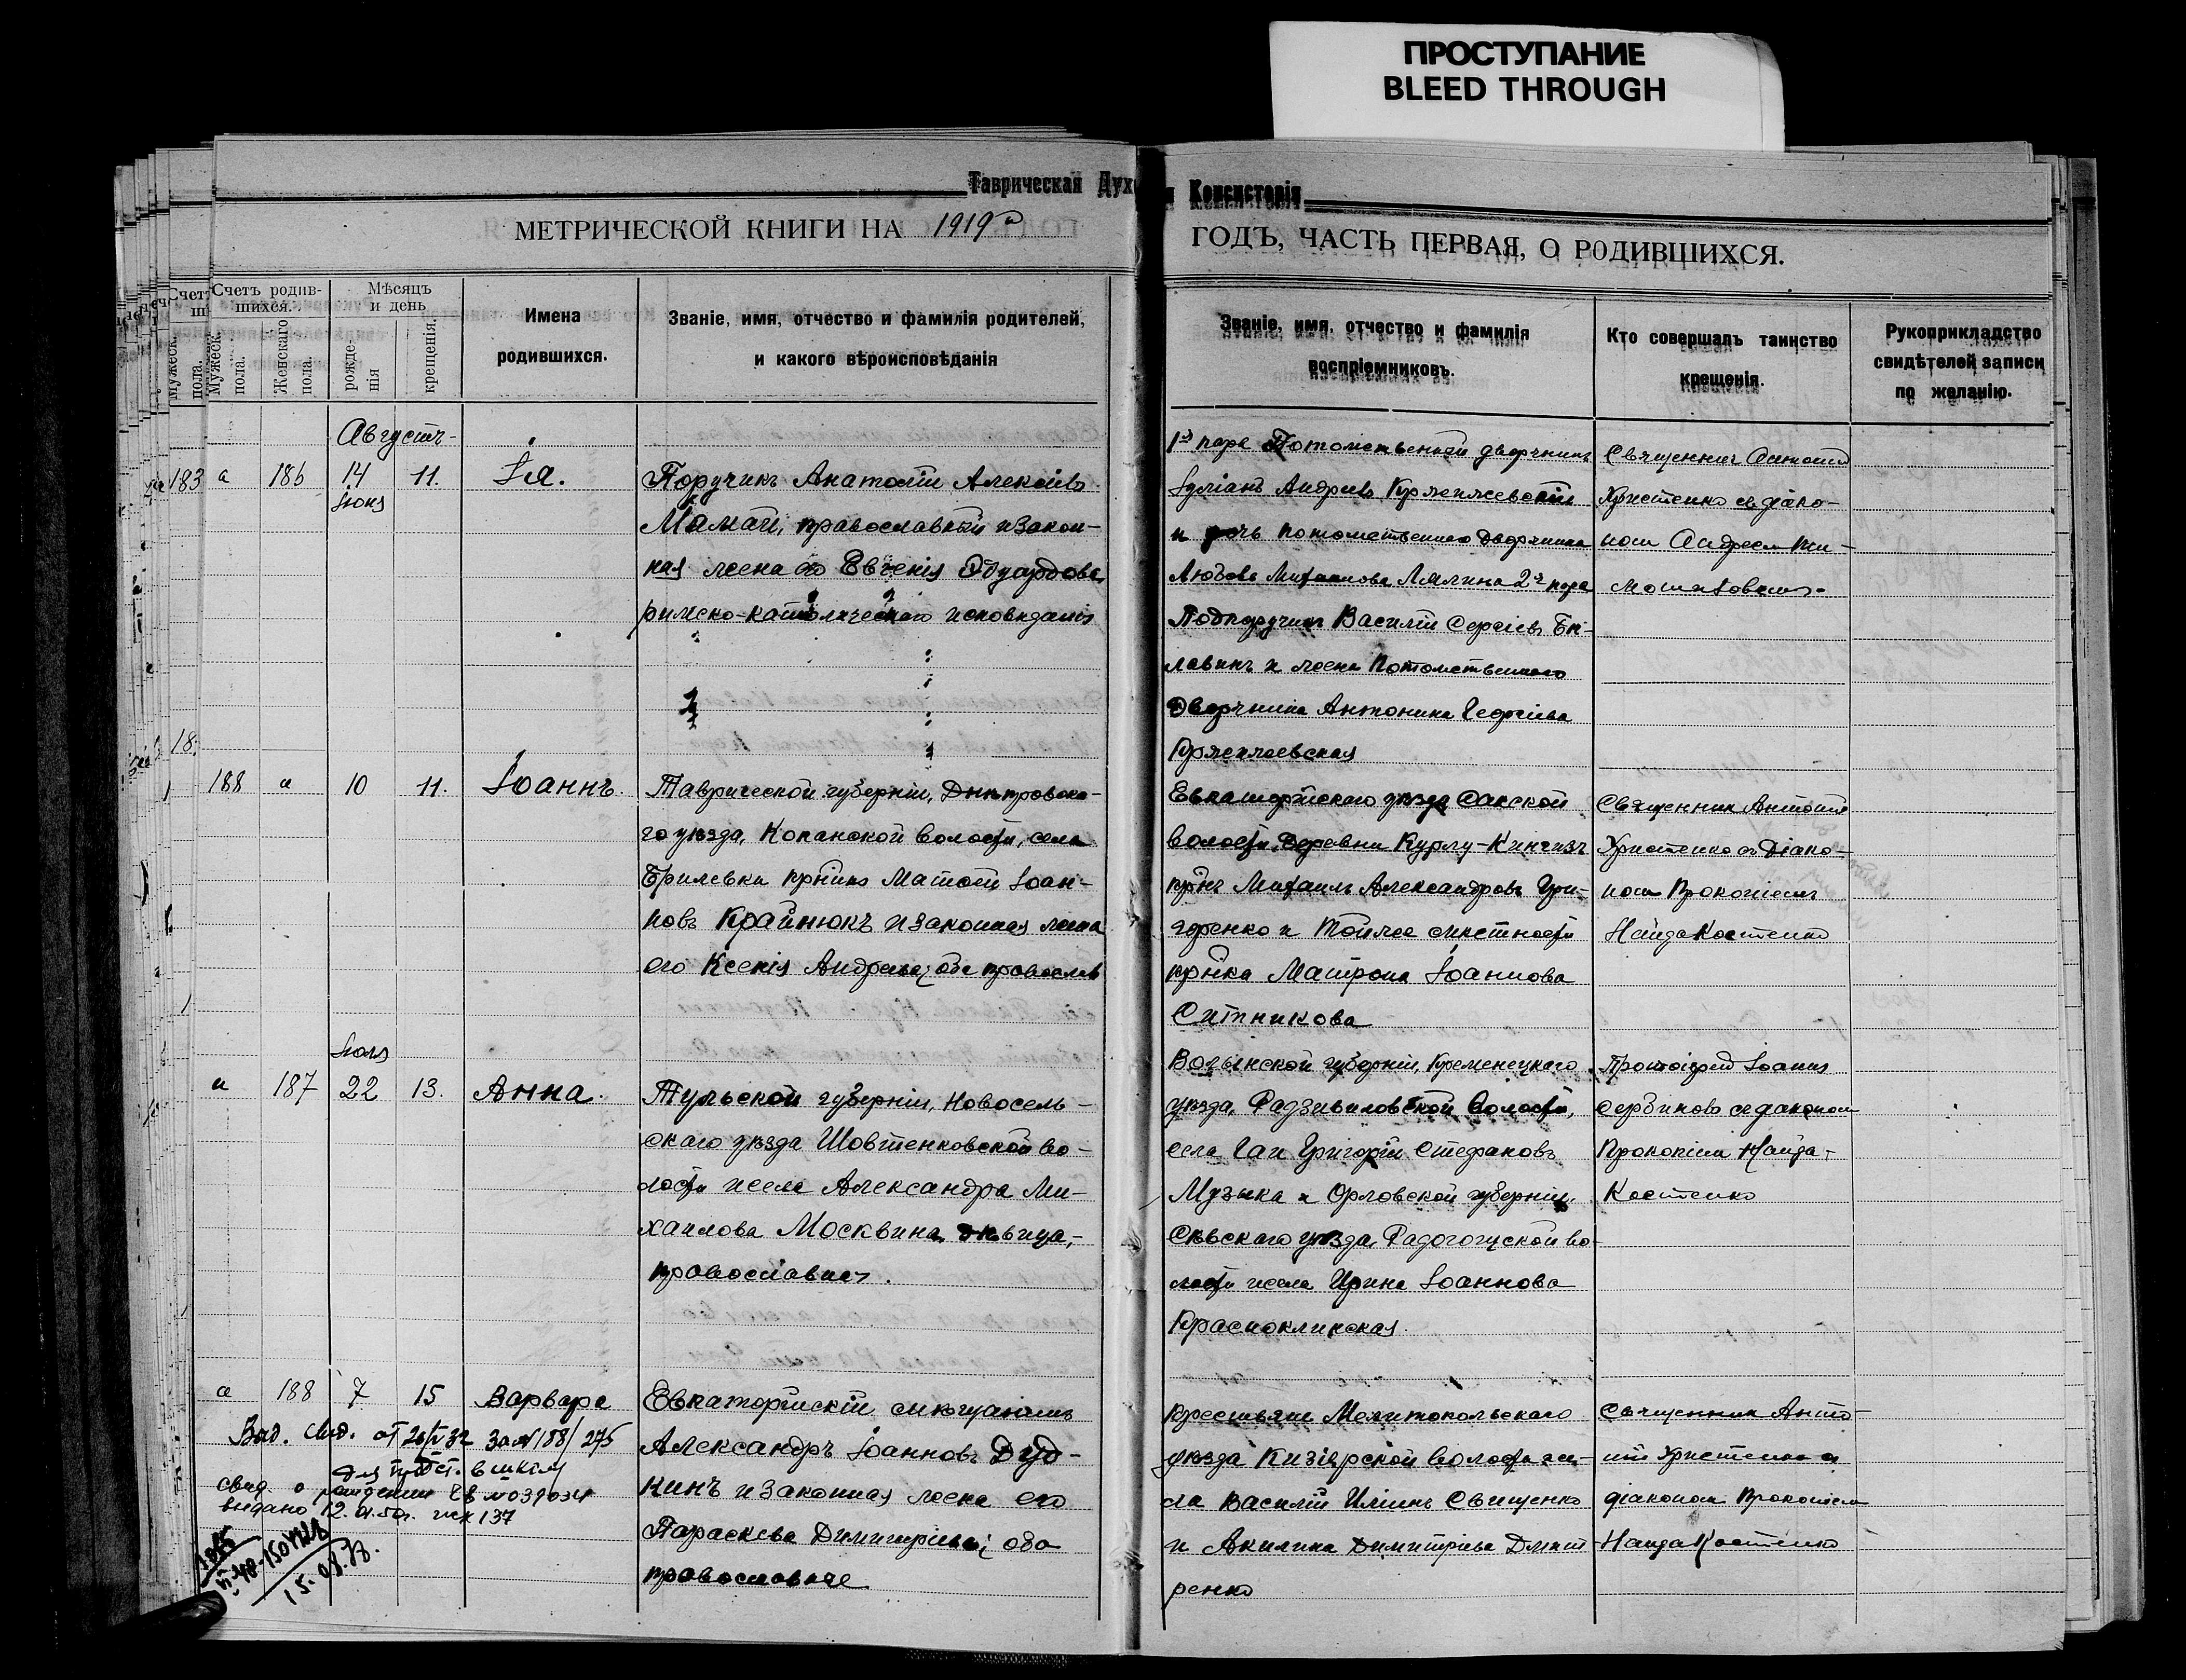 ПРОСТУПАНИЕ
BLEED THROUGH
Таврическая Дух
я Консисторія
МЕТРИЧЕСКОЙ КНИГИ НА 1919
ГОДЪ, ЧАСТЬ ПЕРВАЯ, О РОДИВШИХСЯ.
Счетъ родив-
шихся.
Мужеск. пола.
Женскаго пола.
Мѣсяцъ
и день
рожде-
нія
крещенія.
Имена
родившихся.
Званіе, имя, отчество и фамилія родителей,
и какого вѣроисповѣданія
Званіе, имя, отчество и фамилія
воспріемниковъ.
Кто совершалъ таинство
крещенія.
Рукоприкладство
свидѣтелей записи
по желанію.
Августъ
183
и 186 14 11. Iя.
Поручикъ Анатолій Алексіевъ
Мамай, православный и закон-
ная жена его Евгенія Эдуардова
римско-католическаго исповѣданія
1я пара Потомственный дворянинъ
Іуліанъ Андреевъ
и дочь потомственнаго дворянина
Любовь Михаилова Лялина 2я пара
Подпоручикъ Василій Сергіевъ Бѣ-
лавинъ и жена Потомственнаго
Дворянина Антонина Георгіева
Священникъ Антоній
Христенко съ діако-
номъ Андреем
18
188 и 10 11. Іоаннъ.
Таврической губерніи, Днѣпровска-
го уѣзда, Копанской волости, села
Брилевки крнинъ Матѳій Іоан-
новъ Крайнюкъ и законная жена
его Ксенія Андреева, оба православ
Евпаторійскаго уѣзда Сакской
волости, деревни Курлу-Кингизъ
крнъ Михаилъ Александровъ Гри-
горенко и той же мѣстности
крнка Матрона Іоаннова
Ситникова
Священник Антоній
Христенко съ Діако-
номъ Прокопіемъ
Найда Костенко
Іюля
и 187 22 13. Анна.
Тульской губерніи, Новосель-
скаго уѣзда волости
и села Александра Ми-
хаилова Москвина дѣвица,
православная.
Волынской губерніи, Кременецкаго
уѣзда, Радзивиловской Волости,
села Гаи Григорій Стефановъ
Музыка и Орловской губерніи,
Сѣвскаго уѣзда, Радогощской во-
лости и села Ирина Іоаннова
Красноклинская.
Протоіерей Іоаннъ
Сербиновъ съ діакономъ
Прокопіемъ Найда-
Костенко
и 188 7 15 Варвара
Евпаторійскій мѣщанинъ
Александръ Іоанновъ Дуд-
кинъ и законная жена его
Параскева Димитріева; оба
православные
Крестьяне Мелитопольскаго
уѣзда Кизіярской Волости се-
ла Василій Иліинъ Свищенко
и Акилина Димитріева Дмит
ренко
Священникъ Анто-
ній Христенко съ
діакономъ Прокопіем
Найда Костенко
Выд. свид. от 26/V 32 за № 188/275
свид. о рождении
выдано 12. 137
15.08.78.